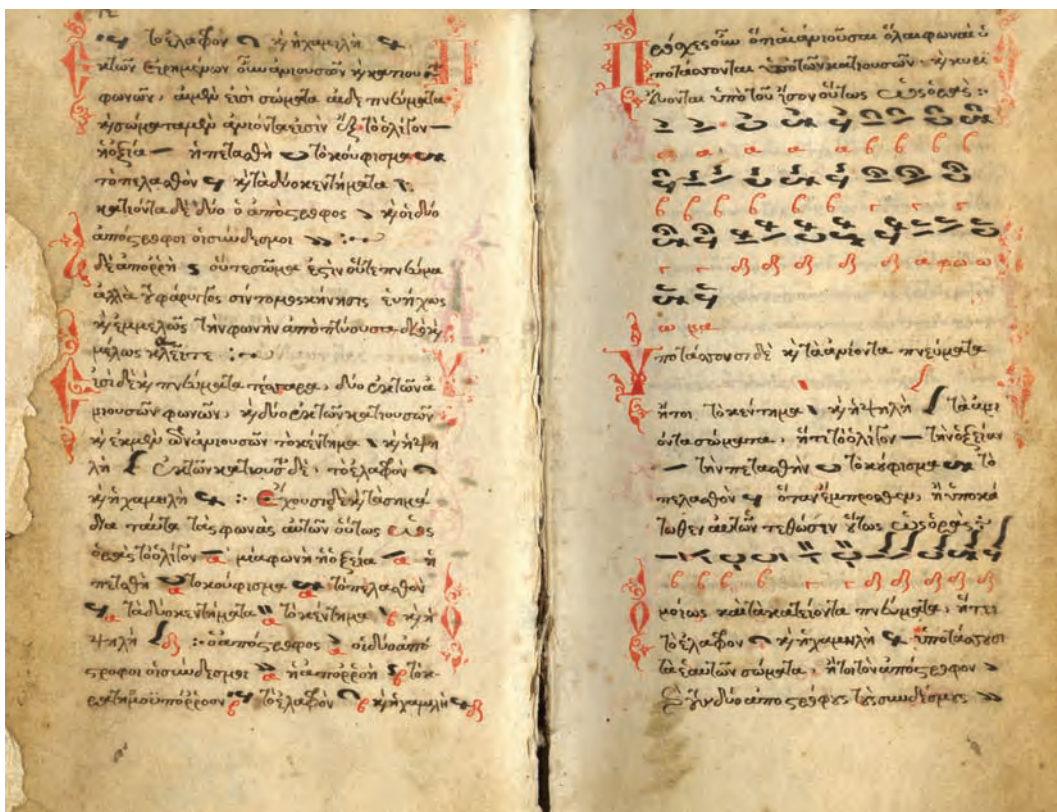 τὸ ἔλαφρὸν κ̀ ἡ χαμιλὴ
Ἐκ τῶν εἰρημένων οὖν ἀνιουσῶν κ̀ κατιουσῶν
φωνῶν, αἱ μὲν εἰσὶ σώματα αἱ δὲ πνεύματα
κ̀ σώματα μὲν ἀνιόντα εἰσὶν ἕξ· τὸ ὀλίγον
ἡ ὀξία ἡ πετασθὴ τὸ κούφισμα
τὸ πελασθὸν κ̀ τὰ δύο κεντήματα
κατιόντα δὲ δύο ὁ ἀπόςροφος κ̀ οἱ δύο
ἀπόςροφοι οἱ σύνδεσμοι
δὲ ἀπόρροὴ οὔτε σῶμα ἐςὶν οὔτε πνεῦμα
ἀλλὰ φάρυγγος σύντομος κήνησις εὐήχως
κ̀ ἐμμελῶς τὴν φωνὴν ἀποπτύουσα
μέλως
Εἰσὶ δὲ κ̀ πνεύματα τέσσαρα, δύο ἐκ τῶν ἀ
νιουσῶν φωνῶν, κ̀ δύο ἐκ τῶν κατιουσῶν
κ̀ ἐκ μὲν ἀνιουσῶν τὸ κέντημα κ̀ ἡ ψη
λὴ ἐκ τῶν κατιουσ δὲ, τὸ ἐλαφρὸν
κ̀ ἡ χαμηλὴ Ἔχουσι δὲ κ̀ τὰ σημά
δια ταῦτα τὰς φωνὰς αὐτῶν οὕτως ὡς
ὁρᾷς τὸ ὀλίγον α μία φωνὴ ἡ ὀξεία α ἡ
πετασθὴ α τὸ κούφισμα α τὸ πελασθὸν
α τὰ δύο κεντήματα α τὸ κέντημα β κ̀ ἡ
ψηλὴ δ ὁ ἀπόςροφος α οἱ δύο ἀπό
στροφοι οἱ σύνδεσμοι α ἡ ἀπόρροὴ β τὸ κ
ρατημοϋπόρροον β τὸ ἐλαφρὸν β κ̀ ἡ χαμιλὴ δ
Πρόσχες οὖν ὅτι αἱ ἀνιοῦσαι ὅλαι φωναὶ ὑ
ποτάσσονται ὑπὸ τῶν κατιουσῶν, κ̀ κυρι
εύονται ὑπὸ τοῦ ἴσου οὕτως ὡς ὁρᾷς
α α α α β β β β
β β β β β β γ γ γ
γ γ δ δ δ δ α φω ω
ω να
Ὑποτάσσουσι δὲ κ̀ τὰ ἀνιόντα πνεύματα
ἤτοι τὸ κέντημα κ̀ ἡ ψιλὴ τὰ ἀνι
όντα σώματα, ἤτι τὸ ὀλίγον τὴν ὀξείαν
τὴν πετασθὴν τὸ κούφισμα τὸ
πελασθὸν ὅταν ἔμπροσθεν, ἢ ὑποκά
τωθεν αὐτῶν τεθῶσιν οὕτως ὡς ὁρᾷς
β β β β γ γ δ δ δ δ δ
Ὁμοίως καὶ τὰ κατειόντα πνεύματα, ἤτει
τὸ ἐλαφρὸν κ̀ ἡ χαμηλὴ ὑποτάσσουσι
τὰ ἑαυτῶν σώματα, ἤτοι τὸν ἀπόςροφον
δύο ἀποςρόφους τοὺς συνδέσμους